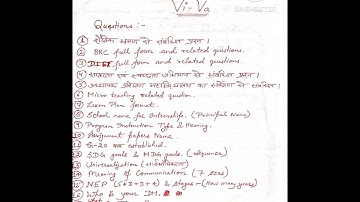 Vi-Va
Questions:-
① शैक्षिक भ्रमण से संबंधित प्रश्न।
② BRC full form and related questions.
③ DIET full form and related questions.
④ साक्षरता एवं स्वच्छता अभियान से संबंधित प्रश्न।
⑤ अध्यापक शिक्षा महाविद्यालय का संबंध से संबंधित।
⑥ Micro teaching related question.
⑦ Lesson Plan format.
⑧ School name for Internship. (Principal Name)
⑨ Program Instruction Type & Meaning.
⑩ Assignment papers Name.
⑪ G-20 कब established.
⑫ SDG goals & MDG goals. (sequence)
⑬ Universalization (सार्वभौमिकरण)
⑭ Meaning of Communication (7 sers)
⑮ NEP (5+3+3+4) & Stages - (How many years)
⑯ Who is your DM.